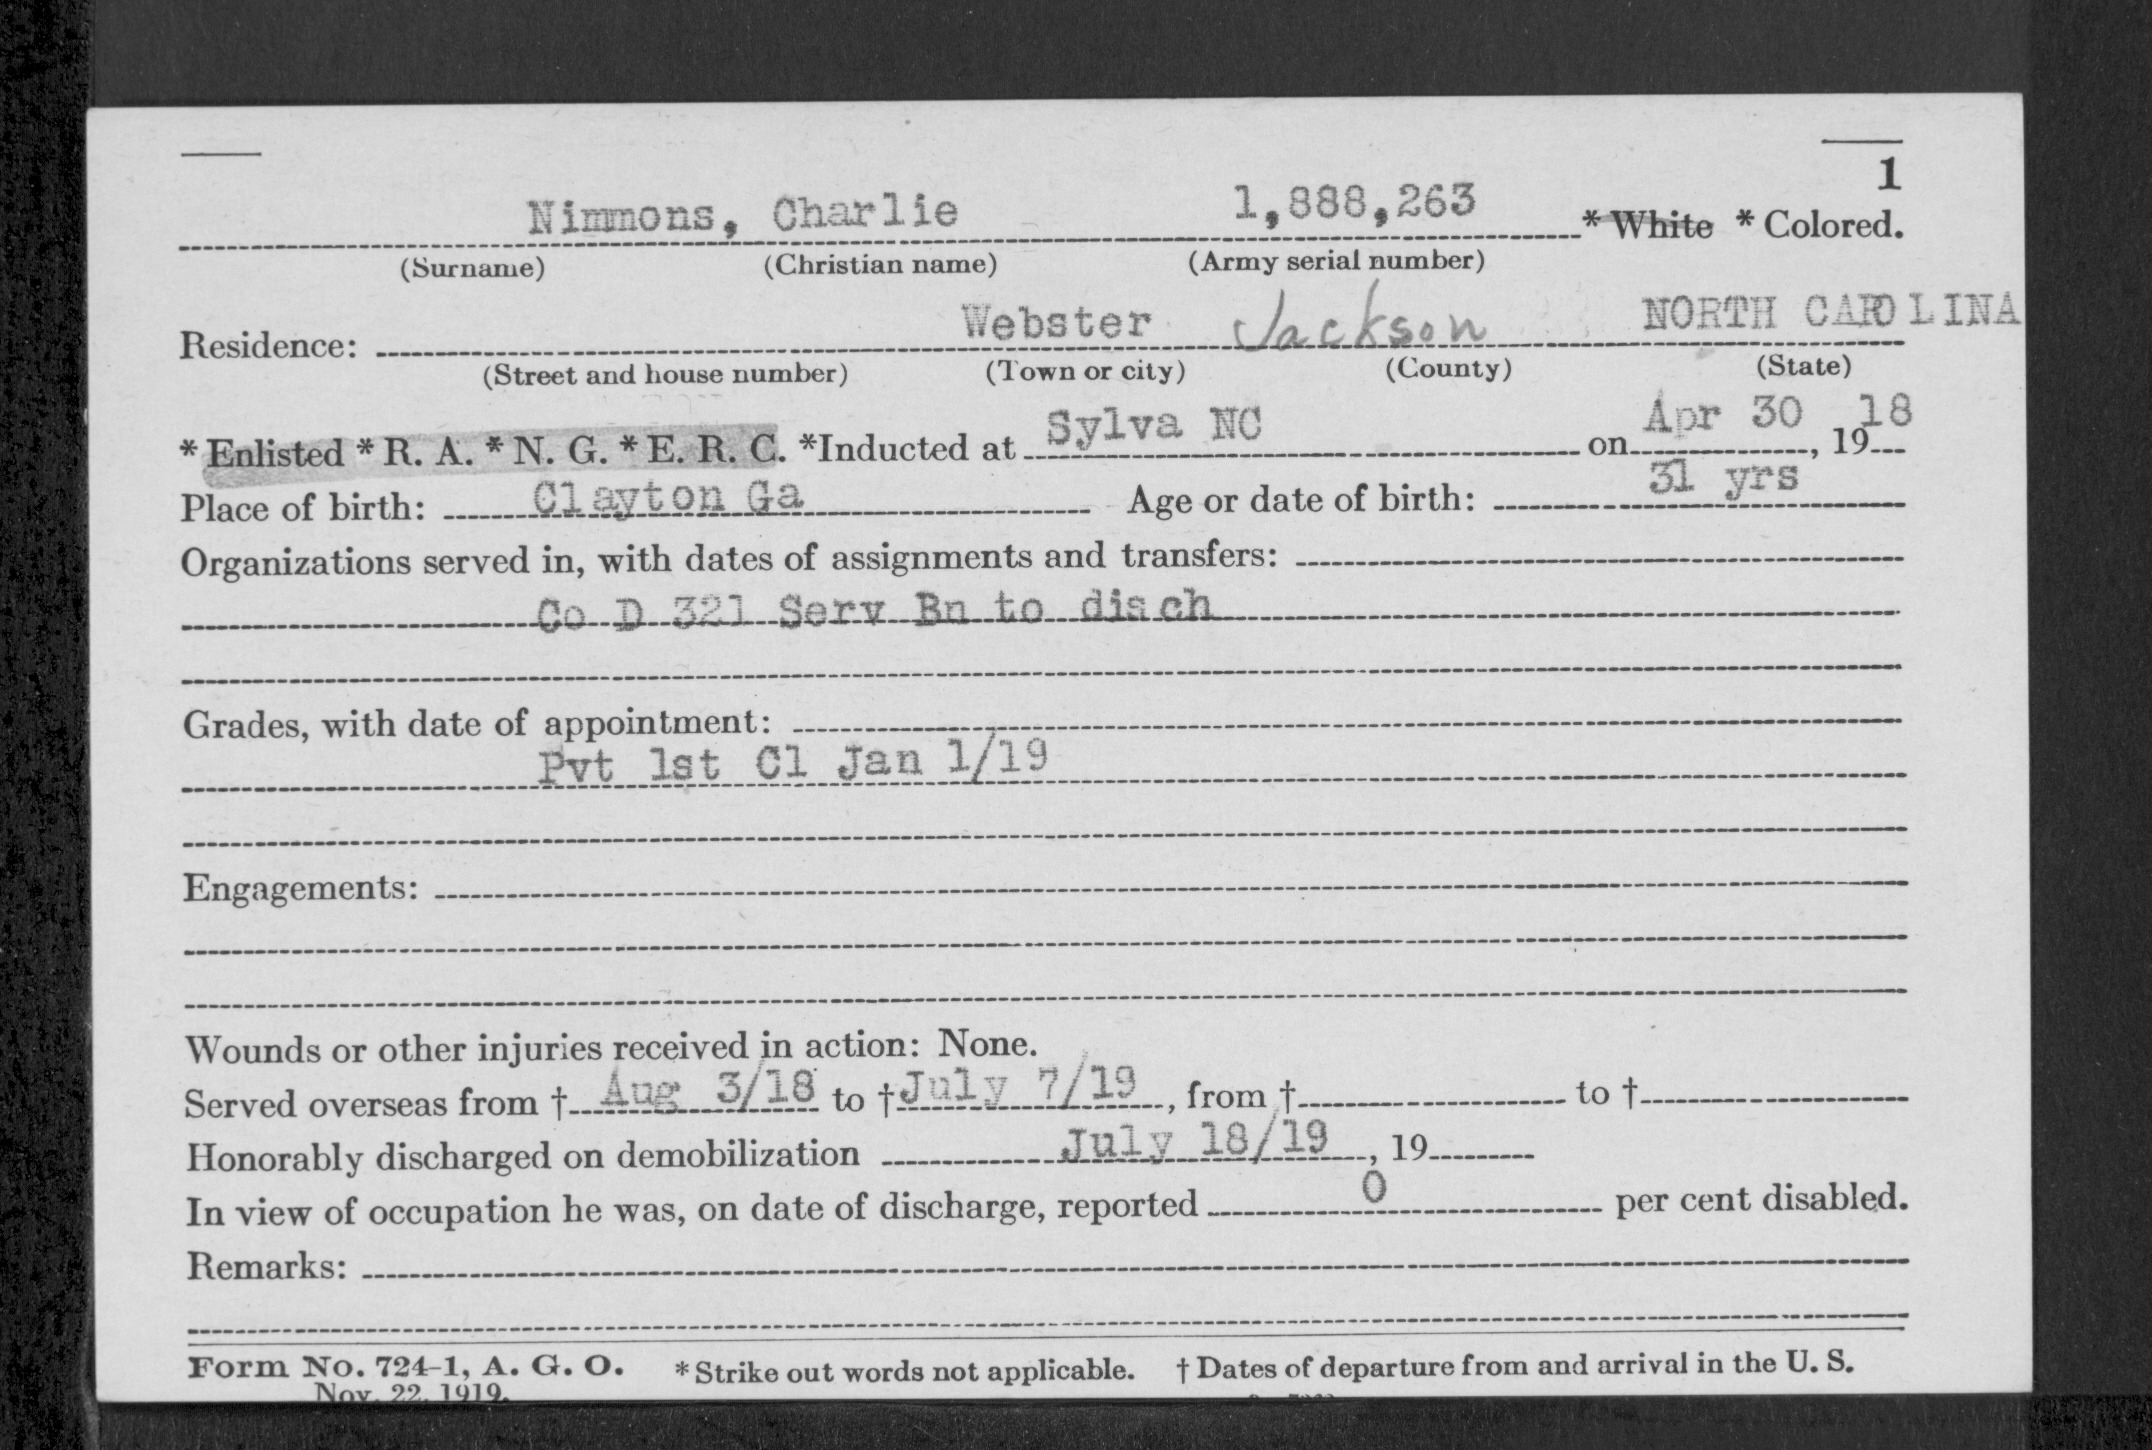 1
Nimmons, Charlie 1,888,263 * White * Colored.
(Surname) (Christian name) (Army serial number)
Residence: Webster Jackson NORTH CAROLINA
(Street and house number) (Town or city) (County) (State)
* Enlisted * R. A. * N. G. * E. R. C. *Inducted at Sylva NC on Apr 30, 1918
Place of birth: Clayton Ga Age or date of birth: 31 yrs
Organizations served in, with dates of assignments and transfers:
Co D 321 Serv Bn to disch
Grades, with date of appointment:
Pvt 1st Cl Jan 1/19
Engagements:
Wounds or other injuries received in action: None.
Served overseas from † Aug 3/18 to † July 7/19, from † to †
Honorably discharged on demobilization July 18/19, 19
In view of occupation he was, on date of discharge, reported 0 per cent disabled.
Remarks:
Form No. 724-1, A. G. O. * Strike out words not applicable. † Dates of departure from and arrival in the U. S.
Nov. 22, 1919.